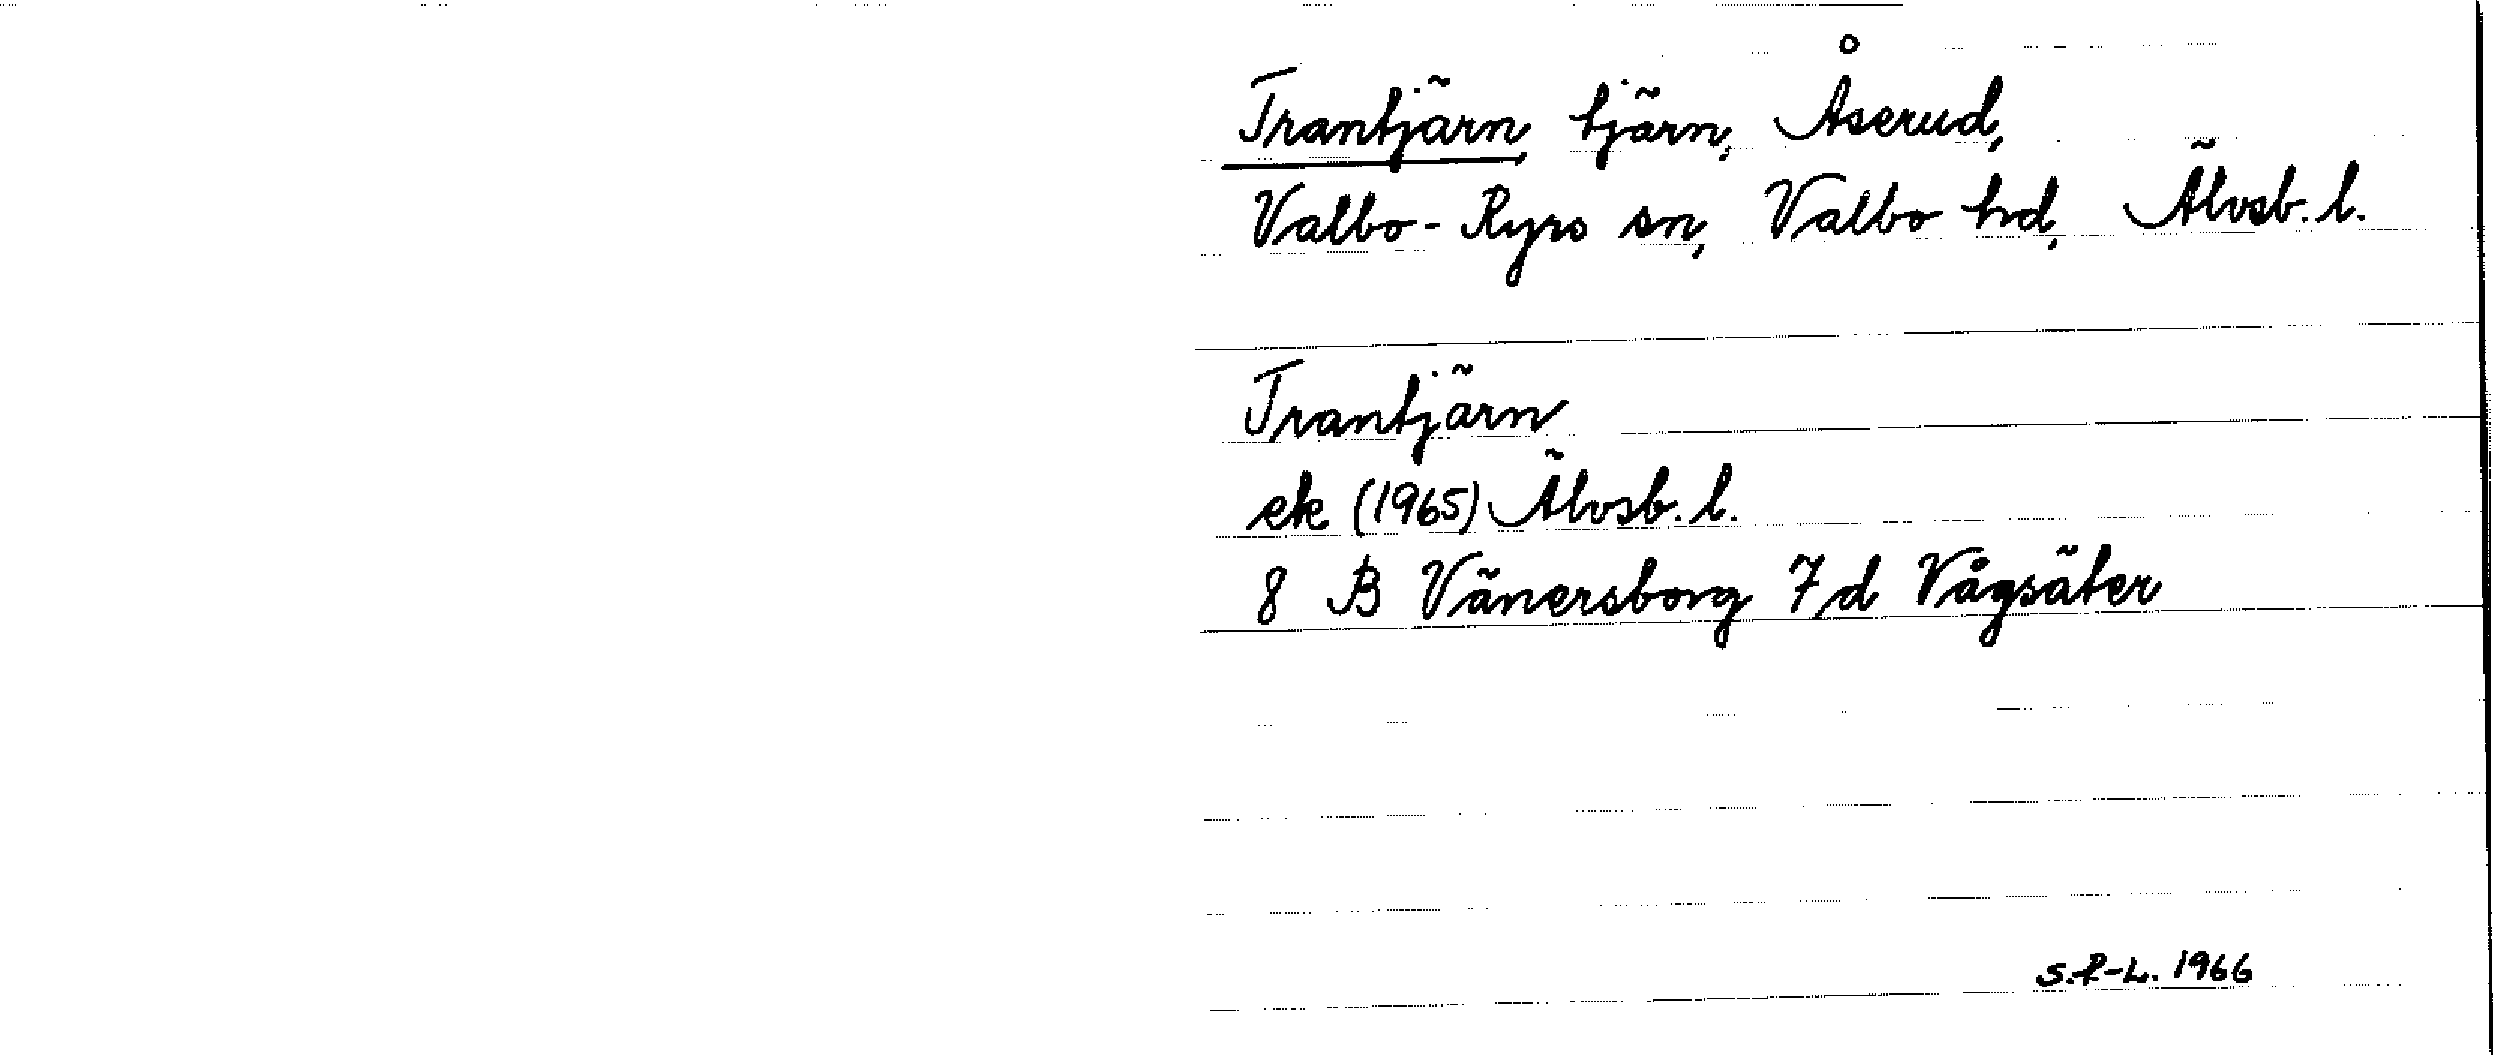 Trantjärn tjärn, Åserud,
Valbo-Ryrs sn, Valbo hd, Älvsb. l.
Trantjärn
ek (1965) Älvsb. l.
8 B Vänersborg 7d Vågsäter
S.R-L. 1966